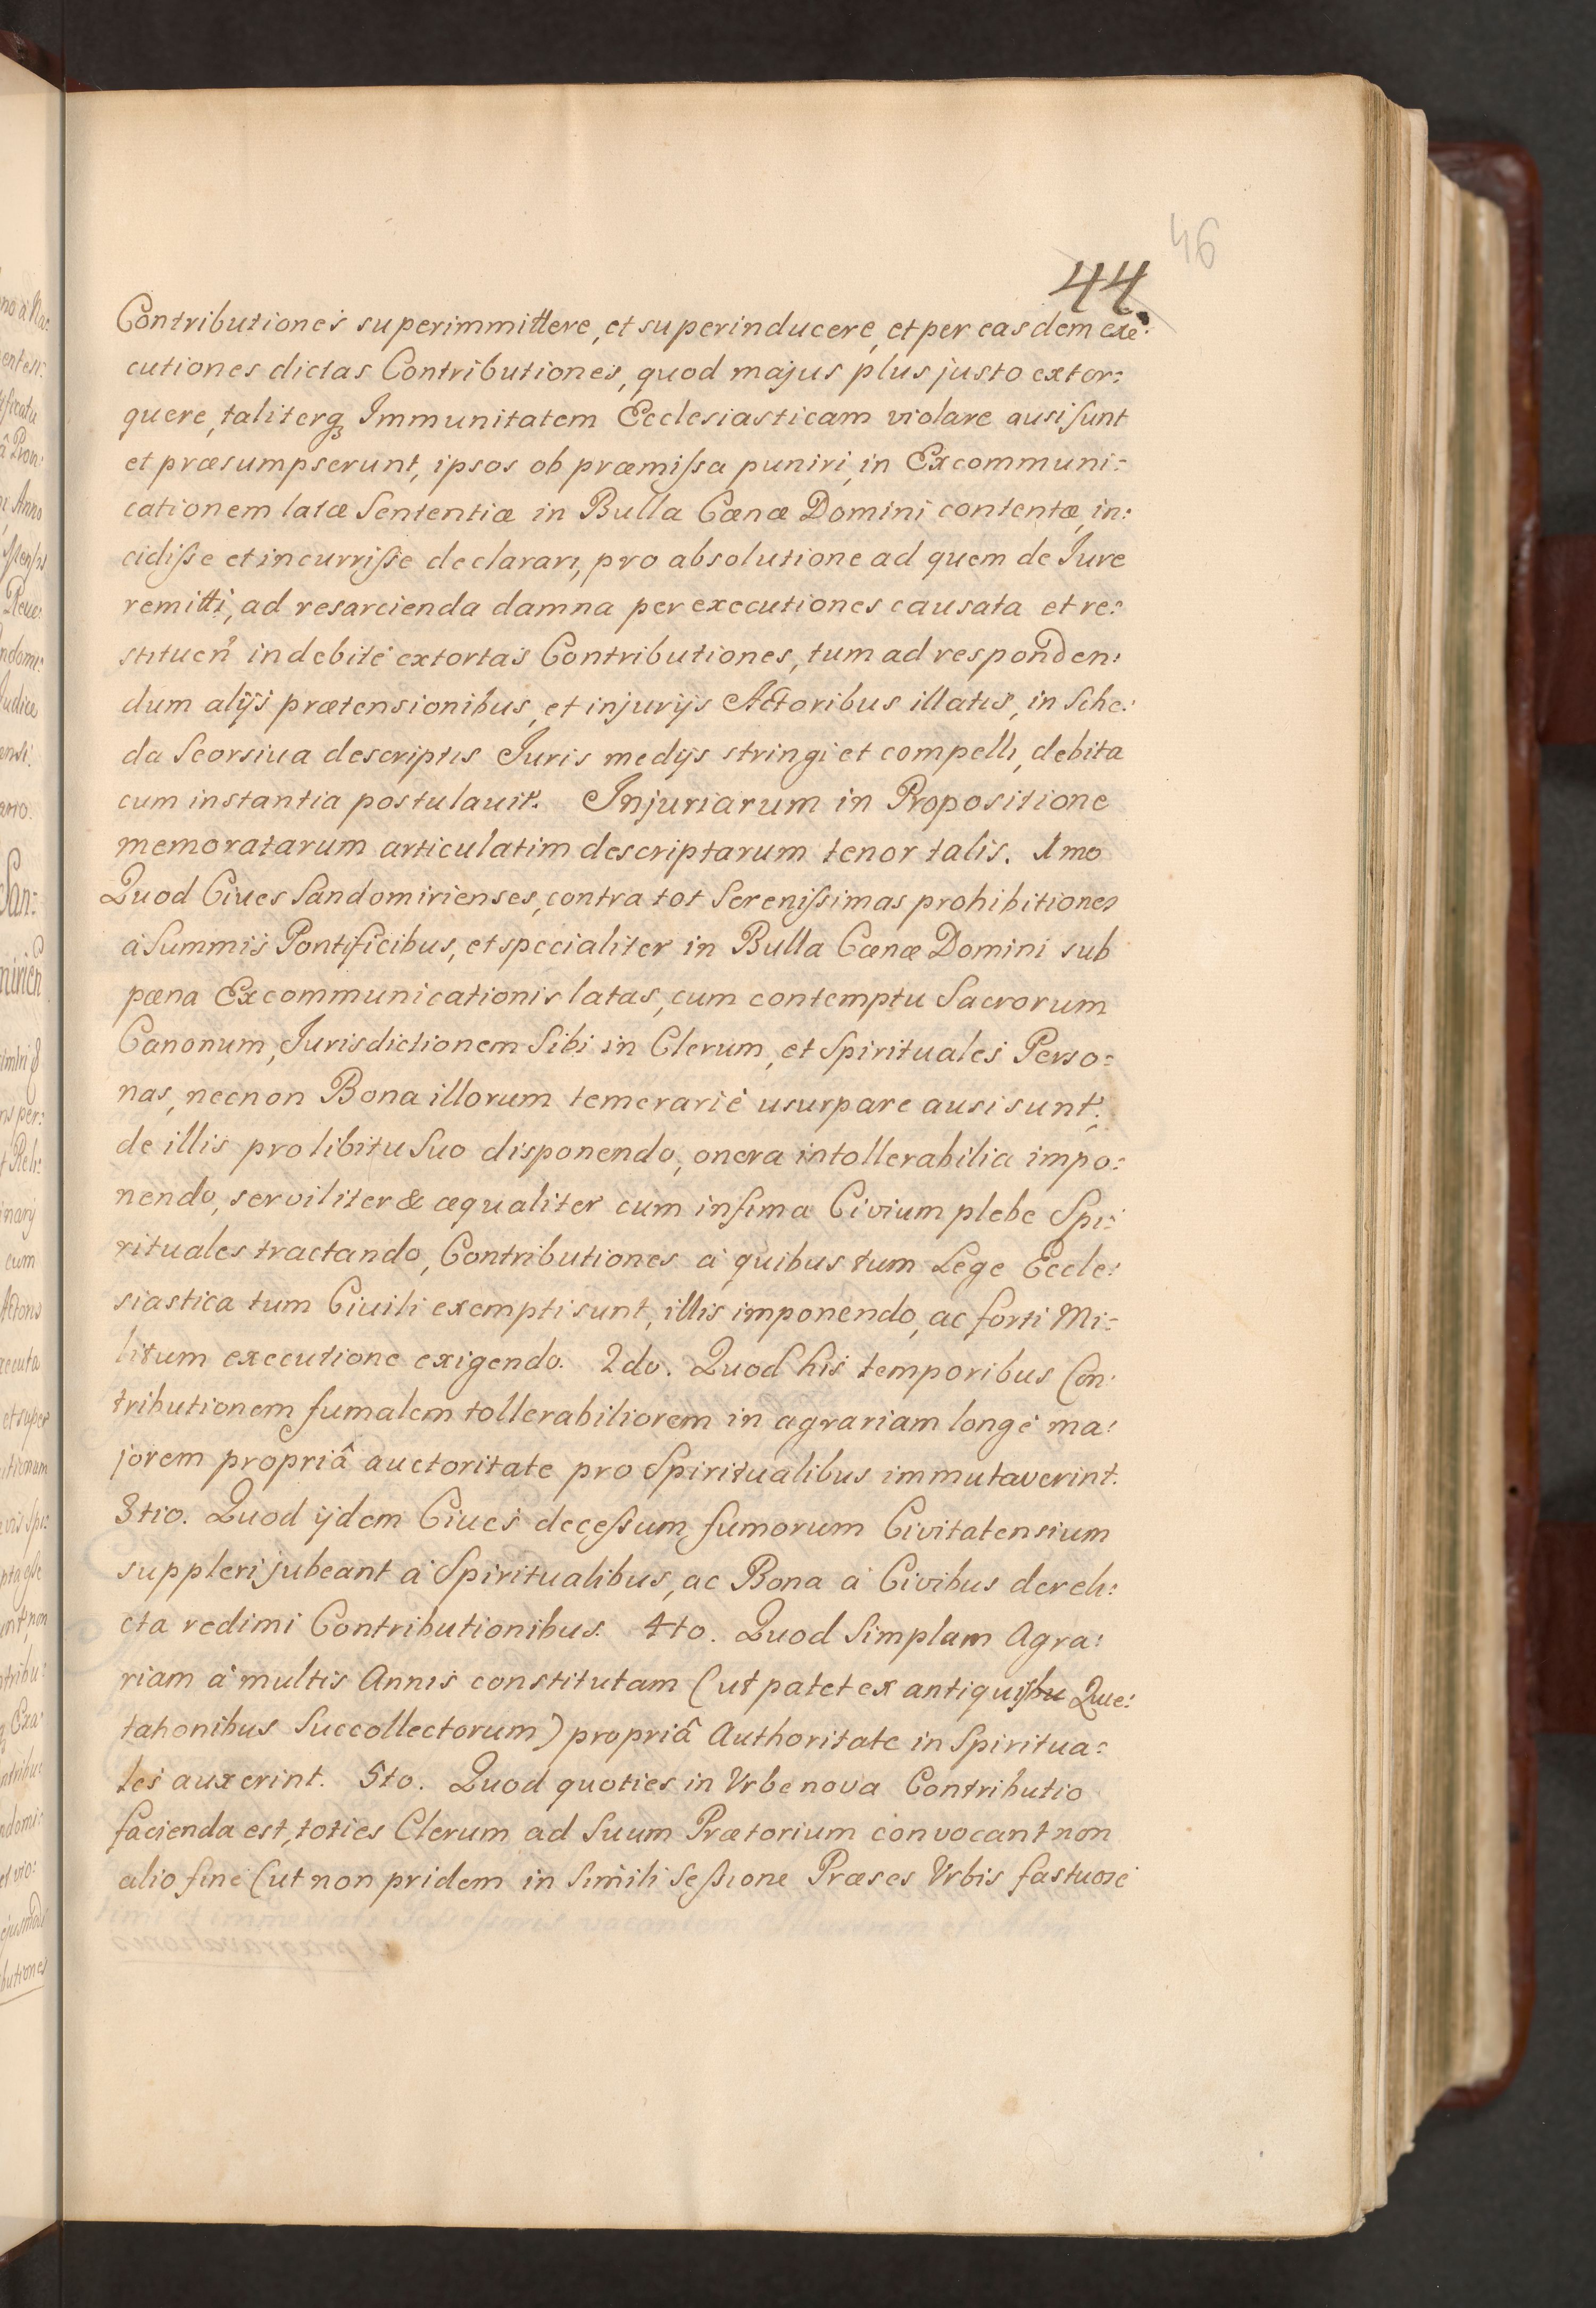 46
44
Contributiones superimmittere, et superinducere, et per easdem exe:
cutiones dictas Contributiones, quod majus plus justo extor:
quere, taliterq; Immunitatem Ecclesiasticam violare ausi sunt
et præsumpserunt, ipsos ob præmissa puniri, in Excommuni:
cationem latæ Sententiæ in Bulla Cœnæ Domini contentæ, in:
cidisse et incurrisse declarari, pro absolutione ad quem de Iure
remitti, ad resarcienda damna per executiones causata et re:
stituen indebitè extortas Contributiones, tum ad responden:
dum alijs prætensionibus, et injurijs Actoribus illatis, in Sche:
da Seorsiua descriptis Iuris medijs stringi et compelli, debita
cum instantia postulauit. Injuriarum in Propositione
memoratarum articulatim descriptarum tenor talis. 1mo
Quod Ciues Sandomirienses, contra tot Serenissimas prohibitiones
à Summis Pontificibus, et specialiter in Bulla Cœnæ Domini sub
pœna Excommunicationis latas, cum contemptu Sacrorum
Canonum, Iurisdictionem Sibi in Clerum, et Spirituales Perso:
nas, necnon Bona illorum temerariè usurpare ausi sunt;
de illis pro libitu Suo disponendo, onera intollerabilia impo:
nendo, serviliter & æqualiter cum infima Civium plebe Spi:
rituales tractando, Contributiones à quibus tum Lege Eccle:
siastica tum Ciuili exempti sunt, illis imponendo, ac forti Mi:
litum executione exigendo. 2do. Quod his temporibus Con:
tributionem fumalem tollerabiliorem in agrariam longè ma:
jorem propriâ auctoritate pro Spiritualibus immutaverint.
3tio. Quod ijdem Ciues decessum fumorum Civitatensium
suppleri jubeant à Spiritualibus, ac Bona à Civibus dereli:
cta redimi Contributionibus. 4to. Quod Simplam Agra:
riam à multis Annis constitutam (ut patet ex antiquis Que:
tationibus Succollectorum) propriâ Authoritate in Spiritua:
les auxerint. 5to. Quod quoties in Vrbe nova Contributio
facienda est, toties Clerum ad Suum Prætorium convocant non
alio fine (ut non pridem in Simili Sessione Præses Vrbis fastuosè